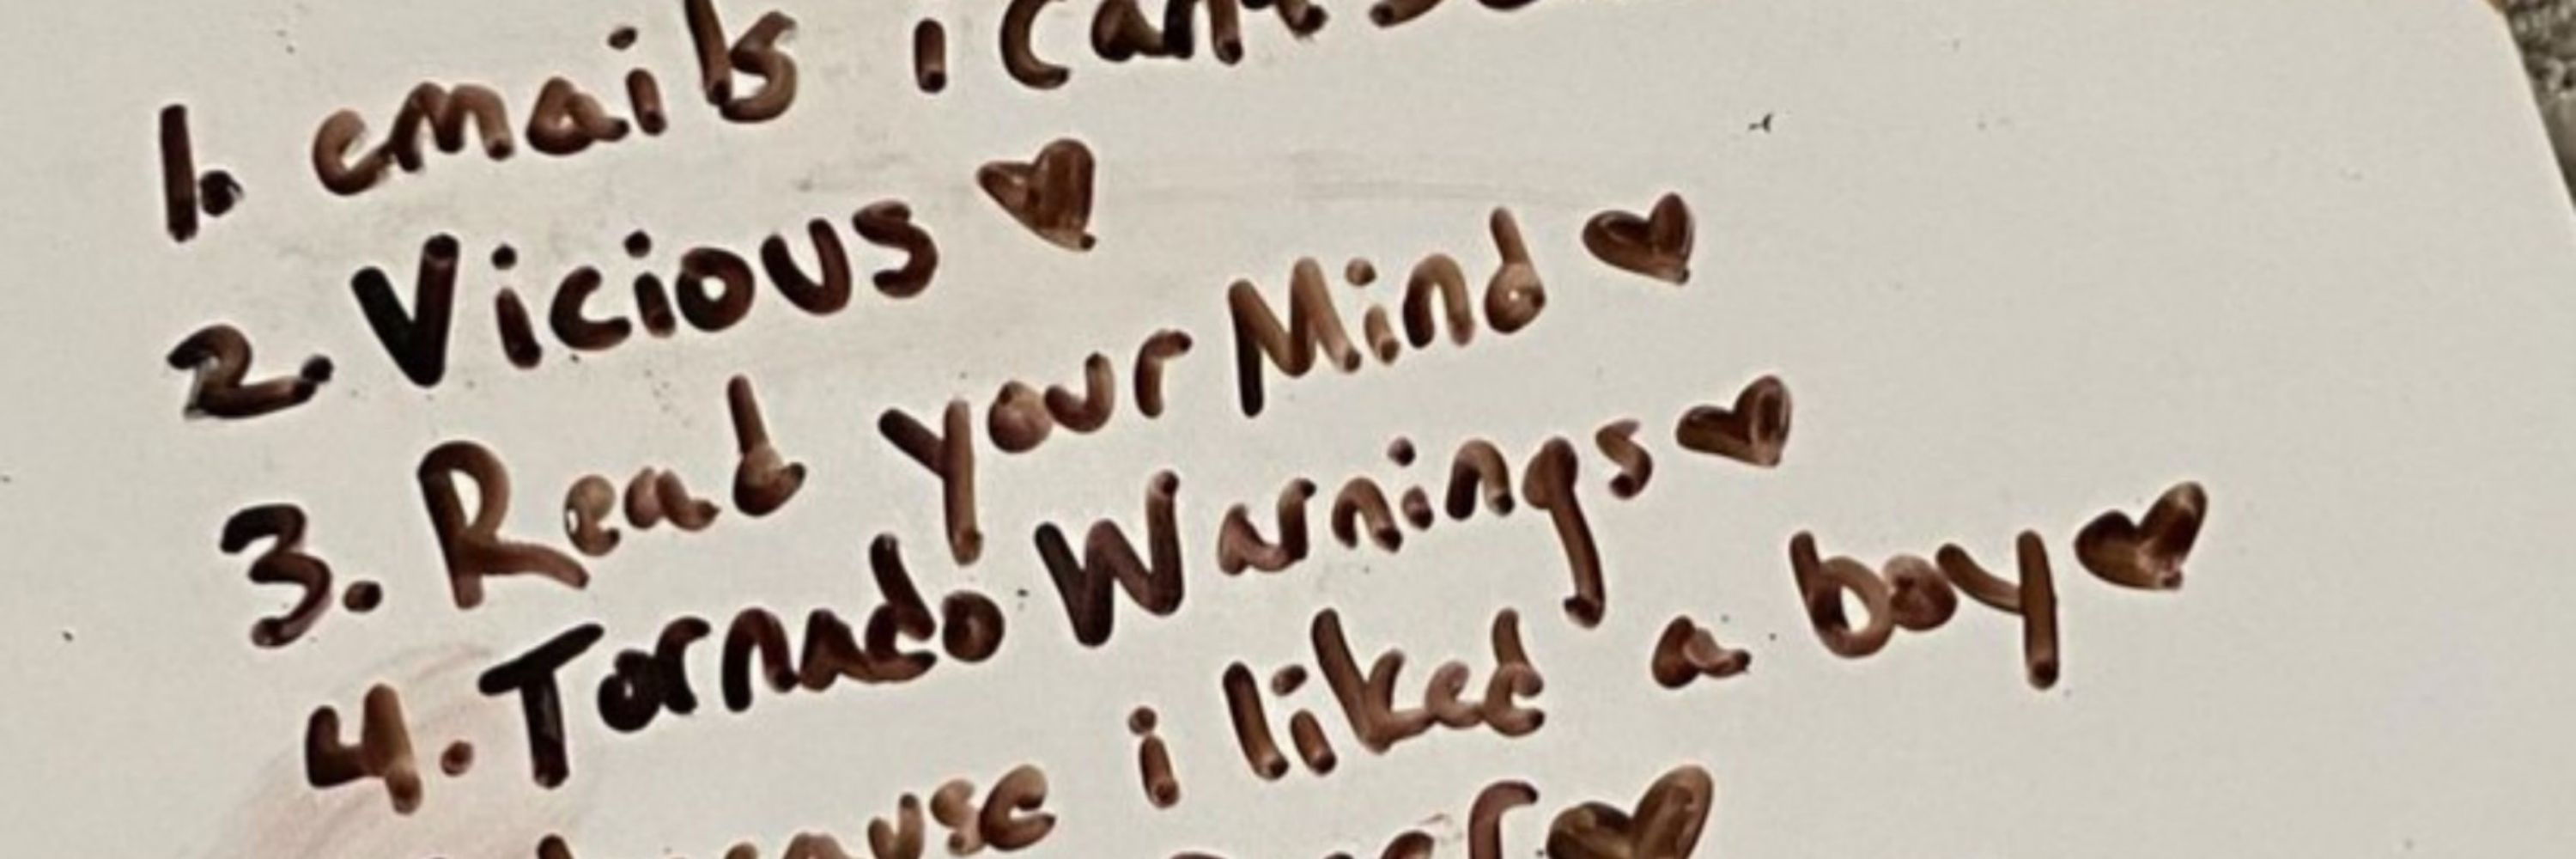 1. emails i can't
2. Vicious ♥
3. Read your Mind ♥
4. Tornado Warnings ♥
because i liked a boy ♥